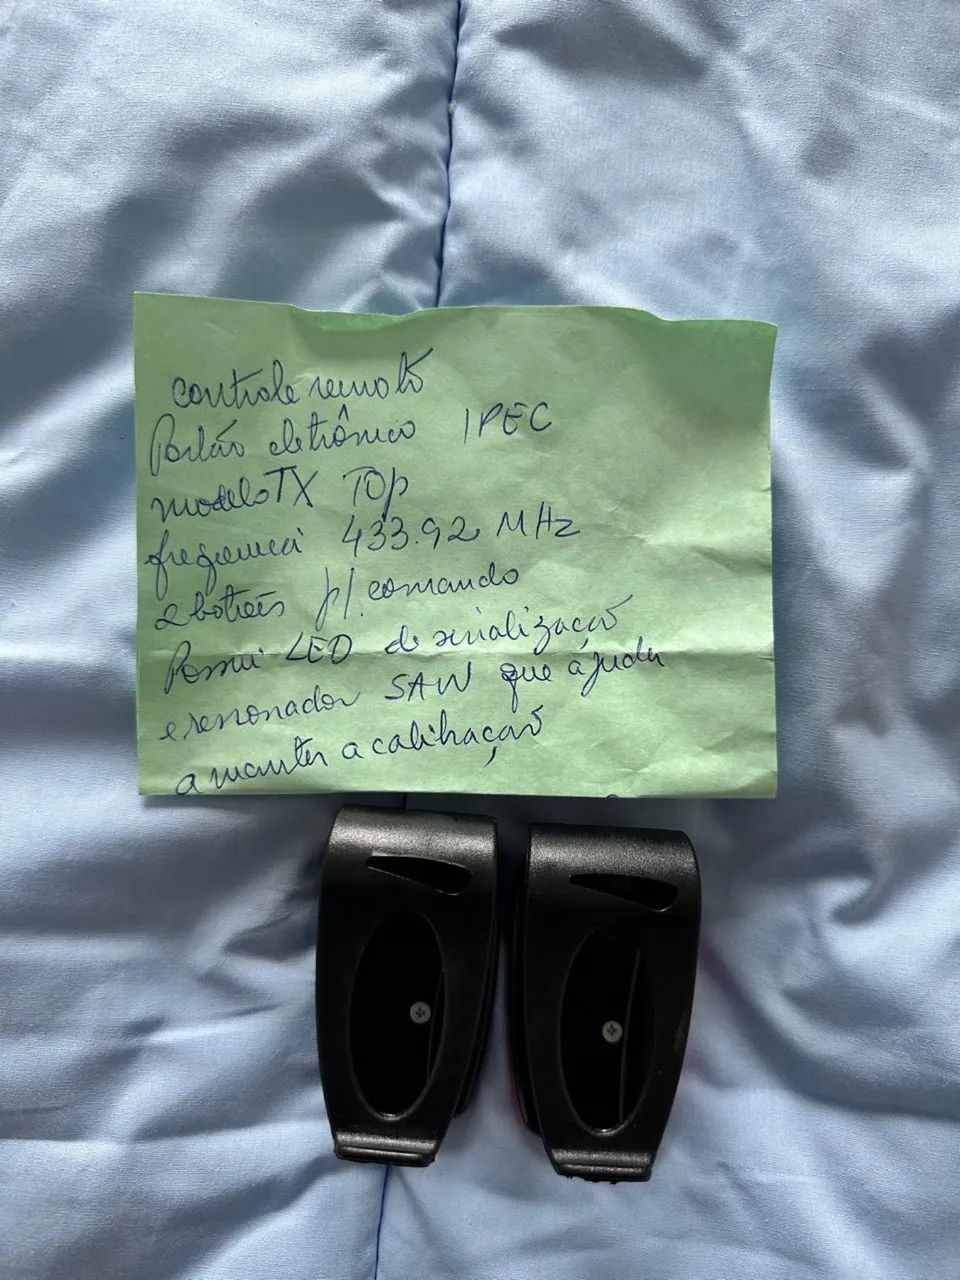 controle remoto
Portão eletrônico IPEC
modelo TX TOp
frequencia 433.92 MHz
2 botões p/ comando
Possui LED de sinalização
e ressonador SAW que ajuda
a manter a calibração